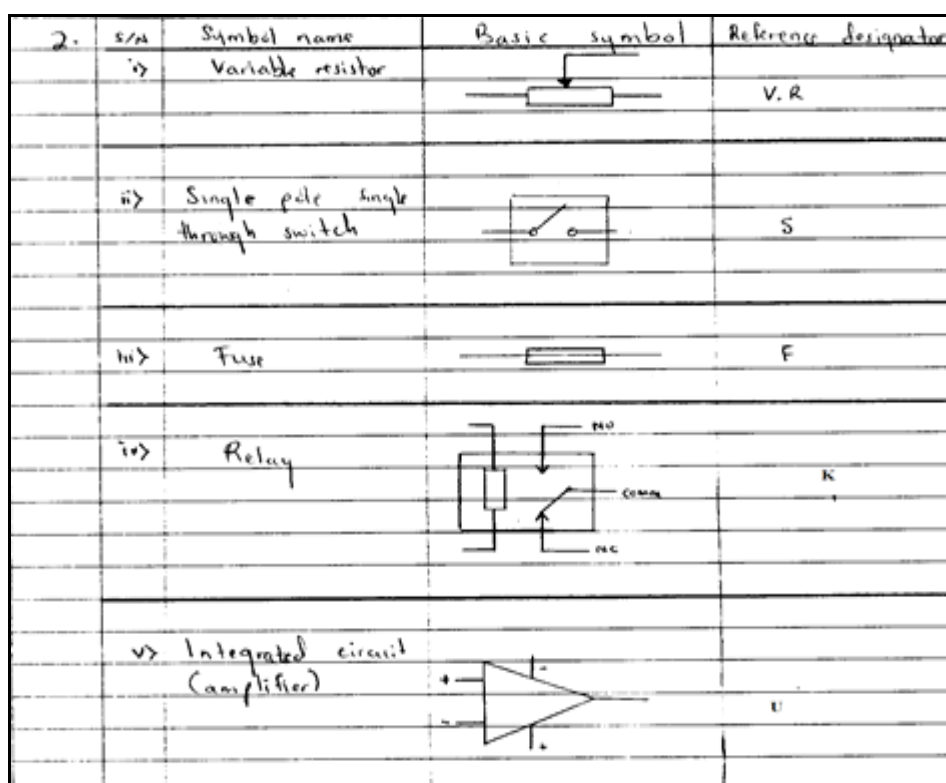 2. S/N Symbol name Basic symbol Reference designator
i> Variable resistor V.R
ii> Single pole single
through switch S
iii> Fuse F
NO
iv> Relay K
COMM
NC
v> Integrated circuit
(amplifier)
+ -
- U
+